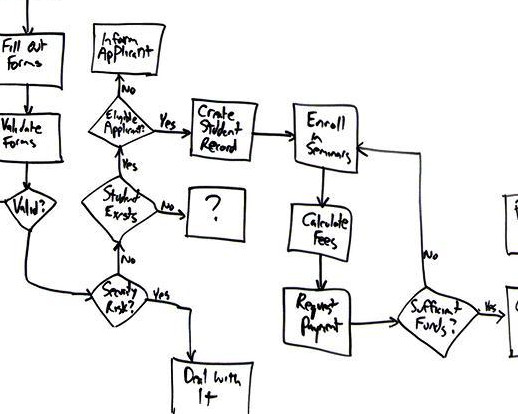 Fill out
Forms
Validate
Forms
Valid?
Inform
Applicant
No
Eligible
Applicant?
Yes
Yes
Student
Exists
No
?
No
Security
Risk?
Yes
Deal with
It
Create
Student
Record
Enroll
in
Seminars
Calculate
Fees
Request
Payment
No
Sufficient
Funds?
Yes